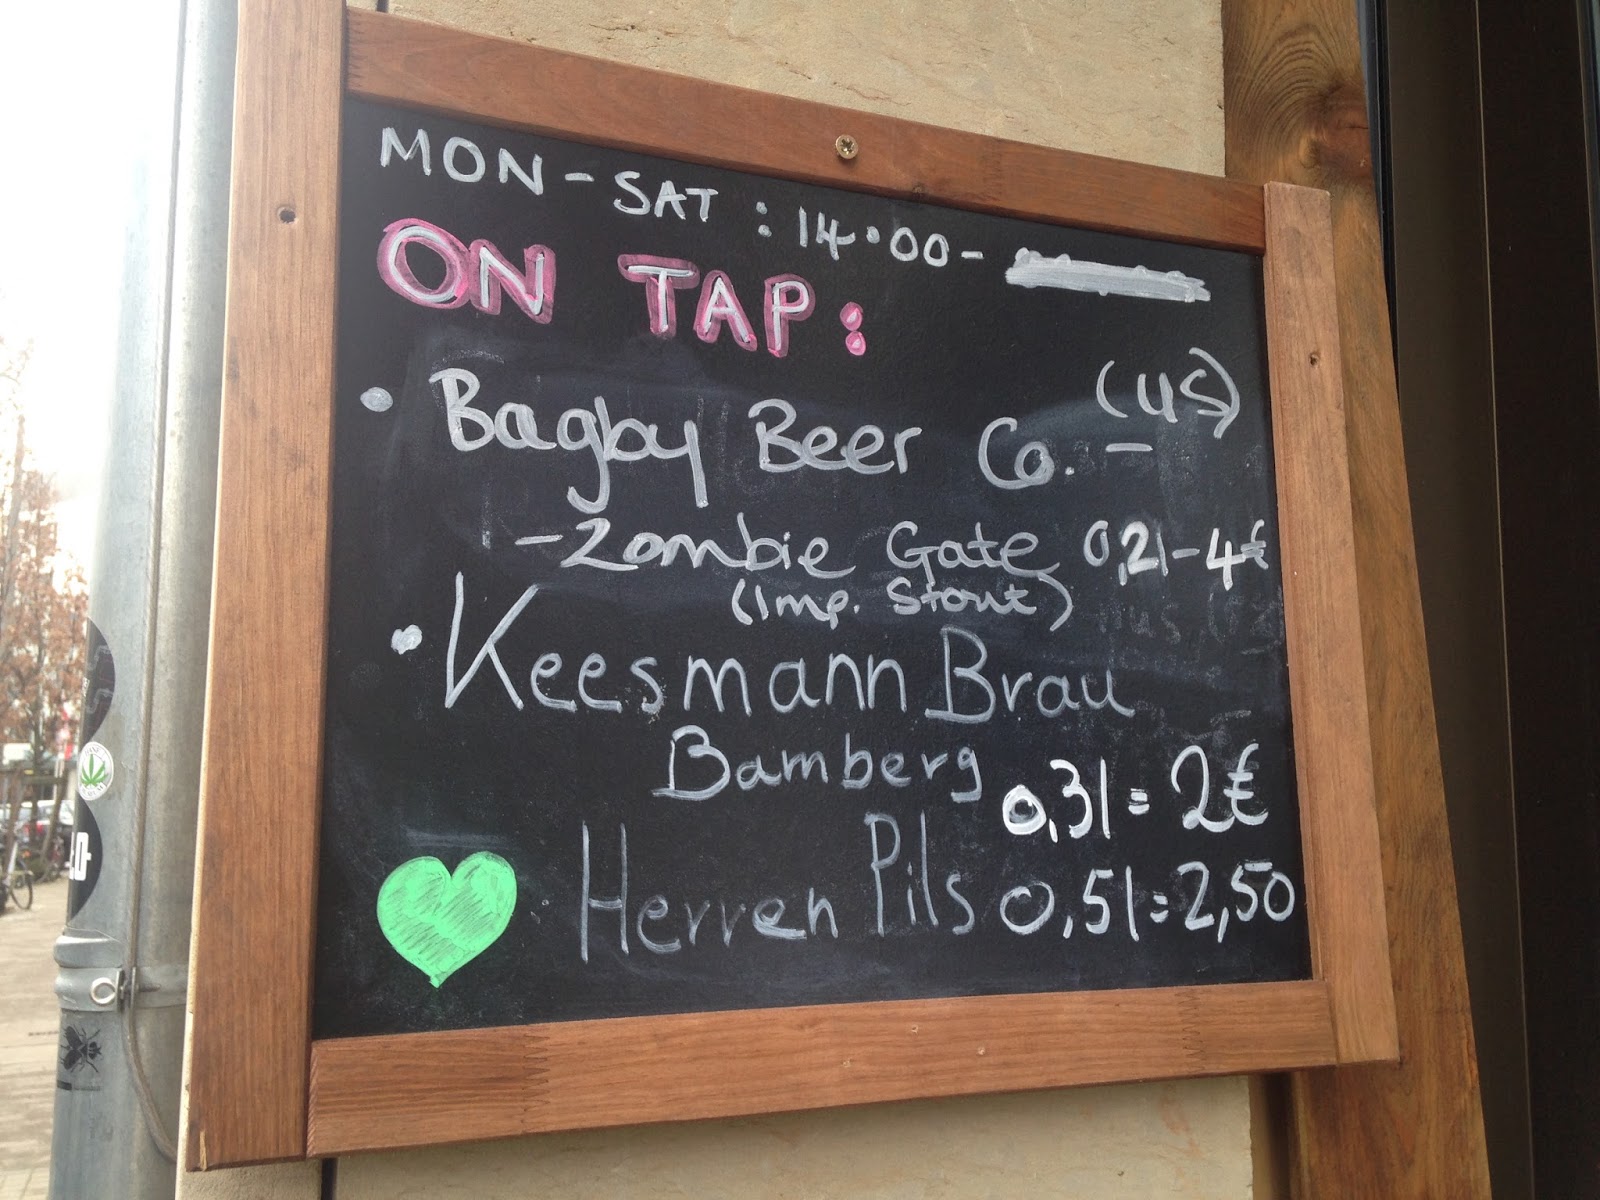 MON-SAT : 14.00-
ON TAP:
• Bagby Beer Co. - (US)
- Zombie Gate 0,2l - 4€
(Imp. Stout)
• Keesmann Brau
Bamberg
0,3l = 2€
Herren Pils 0,5l = 2,50